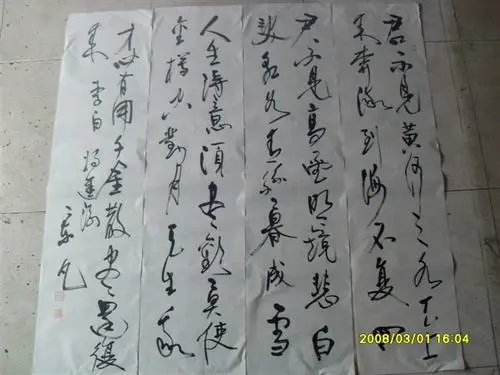 君不見黄河之水天上
来奔流到海不復回
君不見高堂明鏡悲白
髮朝如青絲暮成雪
人生得意須尽歡莫使
金樽空對月天生我
才必有用千金散尽還復
来 李白將進酒
2008/03/01 16:04